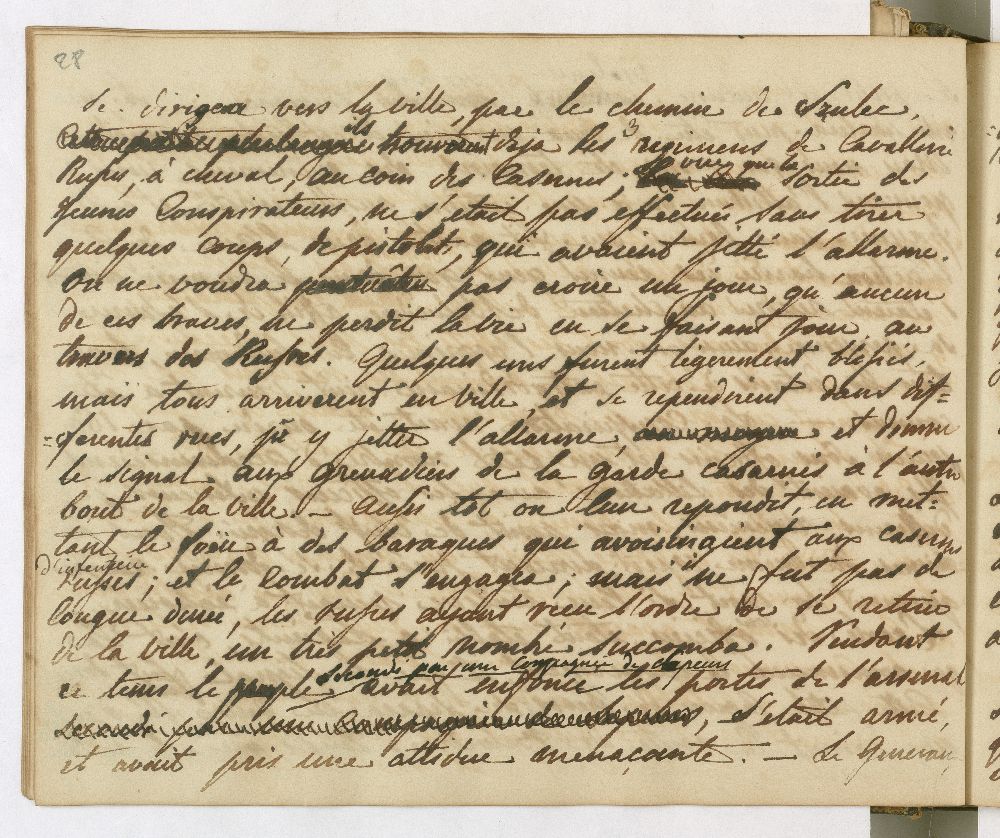 28
se dirigea vers la ville, par le chemin de Szulec,
ils trouverent deja les 3 regimens de Cavallerie
Russes, à cheval, au coin des Casernes; vue que la sortie des
jeunes Conspirateurs, ne s'etait pas effectuée sans tirer
quelques coups, de pistolet, qui avaient jetté l'allarme.
On ne voudra peutêtre pas croire un jour, qu'aucun
de ces braves, ne perdit la vie en se faisant jour au
travers des Russes. Quelques uns furent legerement blessés,
mais tous arriverent en ville, et se rependirent dans dif=
=ferentes rues, p'r y jetter l'allarme et donner
le signal aux grenadiers de la garde casernés à l'autre
bout de la ville. – Aussi tôt on leur repondit, en met=
tant le foeu à des baraques qui avoisinaient aux casernes
d'infenterie
russes; et le combat s'engagea; mais ne fut pas de
longue durée, les russes ayant reçu l'ordre de se retirer
de la ville, un très petit nombre succomba. Pendant
secondé par une compagnie de sapeurs
ce tems le peuple avait enfoncé les portes de l'arsenal
, s'était armé,
et avait pris une attidue menaçante. – Le General